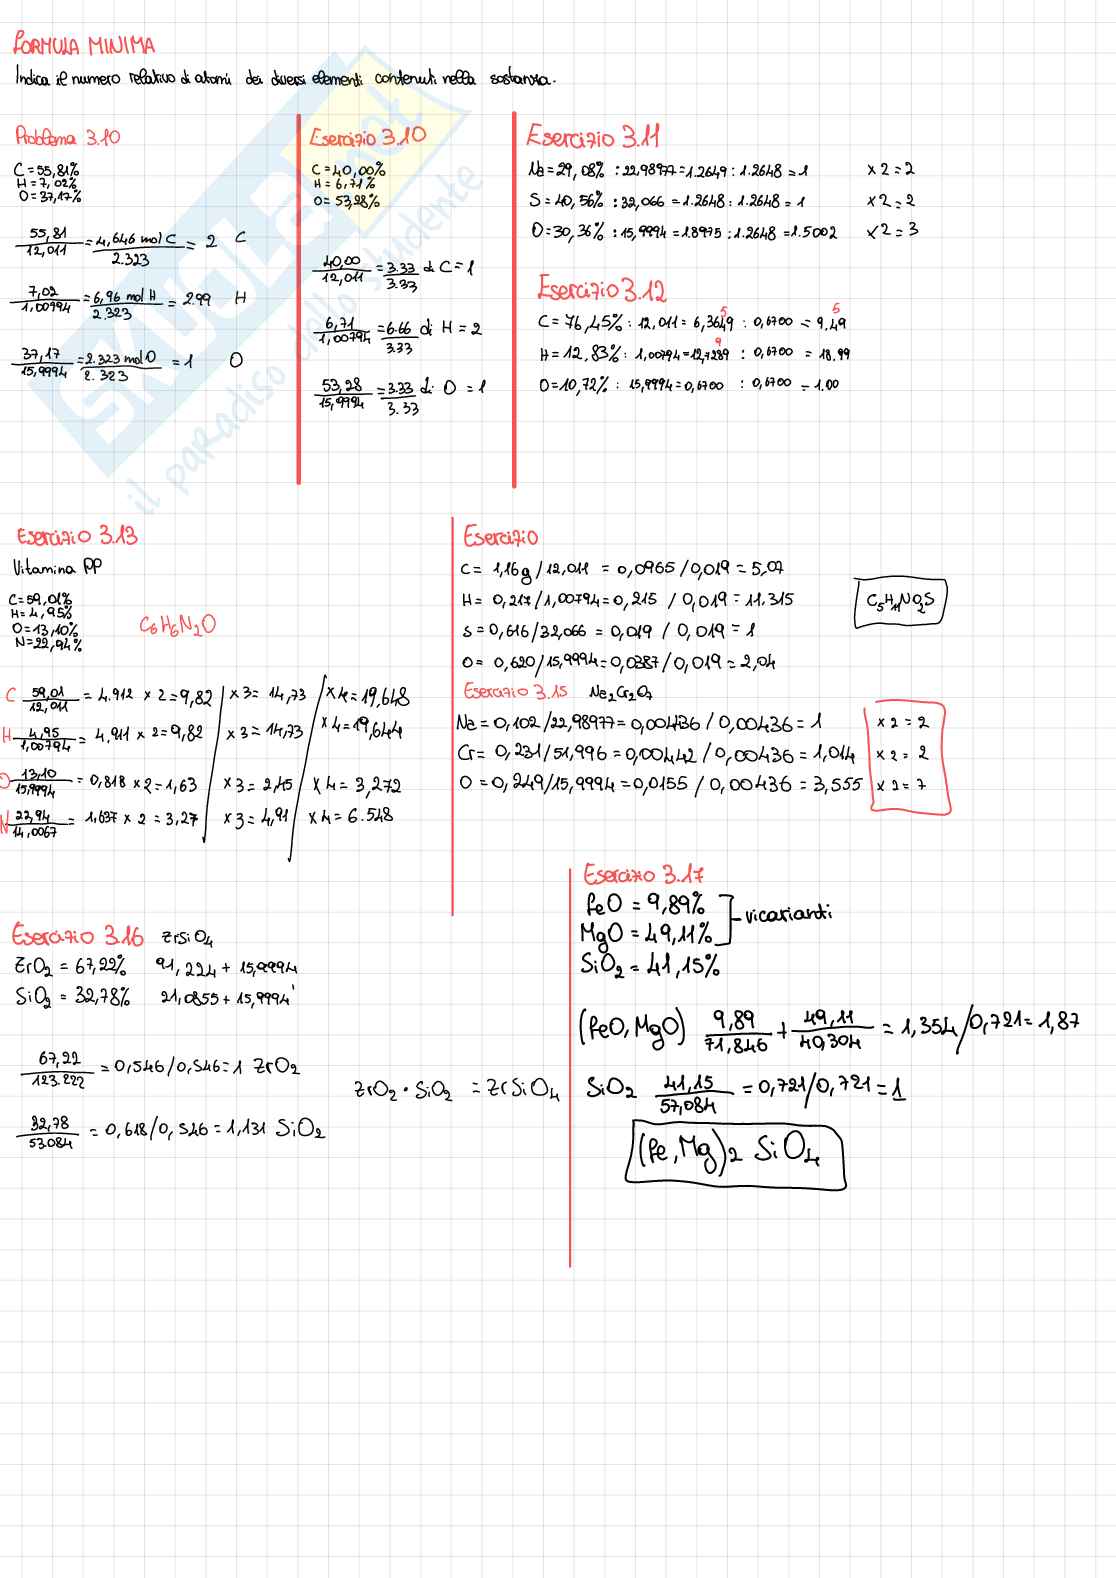 FORMULA MINIMA
Indica il numero relativo di atomi dei diversi elementi contenuti nella sostanza.
Problema 3.10
C = 55,81%
H = 7,02%
O = 37,17%
55,81/12,011 = 4,646 mol C/2.323 = 2 C
7,02/1,00794 = 6,96 mol H/2.323 = 2.99 H
37,17/15,9994 = 2.323 mol O/2.323 = 1 O
Esercizio 3.10
C = 40,00%
H = 6,71%
O = 53,28%
40,00/12,011 = 3.33/3.33 di C = 1
6,71/1,00794 = 6.66/3.33 di H = 2
53,28/15,9994 = 3.33/3.33 di O = 1
Esercizio 3.11
Na = 29,08% : 22,98977 = 1.2649 : 1.2648 = 1 × 2 = 2
S = 40,56% : 32,066 = 1.2648 : 1.2648 = 1 × 2 = 2
O = 30,36% : 15,9994 = 1.8975 : 1.2648 = 1.5002 × 2 = 3
Esercizio 3.12
5 5
C = 76,45% : 12,011 = 6,3649 : 0,6700 = 9,49
9
H = 12,83% : 1,00794 = 12,7289 : 0,6700 = 18.99
O = 10,72% : 15,9994 = 0,6700 : 0,6700 = 1.00
SKUOLA.not
il paradiso dello studente
Esercizio 3.13
Vitamina PP
C = 59,01%
H = 4,95%
O = 13,10%
N = 22,94%
C6H6N2O
C 59,01/12,011 = 4.912 × 2 = 9,82 / × 3 = 14,73 / × 4 = 19,648
H 4,95/1,00794 = 4.911 × 2 = 9,82 × 3 = 14,73 × 4 = 19,644
O 13,10/15,9994 = 0,818 × 2 = 1,63 × 3 = 2,45 × 4 = 3,272
N 22,94/14,0067 = 1,637 × 2 = 3,27 × 3 = 4,91 × 4 = 6.548
Esercizio
C = 1,16g/12,011 = 0,0965/0,019 = 5,07
H = 0,217/1,00794 = 0,215 / 0,019 = 11.315
S = 0,616/32,066 = 0,019 / 0,019 = 1
O = 0,620/15,9994 = 0,0387/0,019 = 2,04
C5H11NO2S
Esercizio 3.15 Na2Cr2O7
Na = 0,102/22,98977 = 0,00436 / 0,00436 = 1 × 2 = 2
Cr = 0,231/51,996 = 0,00442 / 0,00436 = 1,014 × 2 = 2
O = 0,249/15,9994 = 0,0155 / 0,00436 = 3,555 × 2 = 7
Esercizio 3.16 ZrSiO4
ZrO2 = 67,22% 91,224 + 15,9994
SiO2 = 32,78% 21,0855 + 15,9994
67,22/123.222 = 0,546/0,546 = 1 ZrO2
32,78/53.084 = 0,618/0,546 = 1,131 SiO2
ZrO2 · SiO2 = ZrSiO4
Esercizio 3.17
FeO = 9,89%
MgO = 49,11% vicarianti
SiO2 = 41,15%
(FeO, MgO) 9,89/71,846 + 49,11/40,304 = 1,354/0,721 = 1,87
SiO2 41,15/57,084 = 0,721/0,721 = 1
(Fe,Mg)2 SiO4